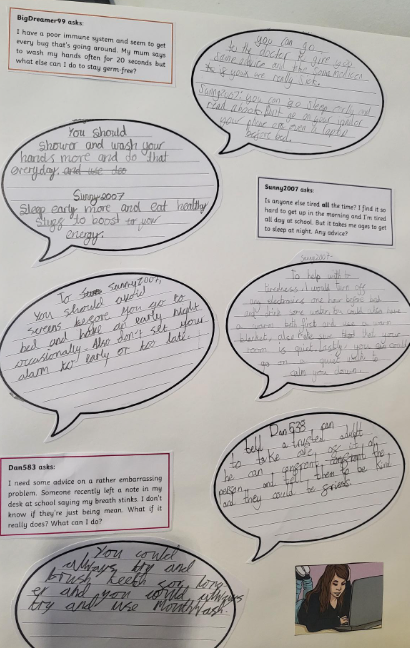 BigDreamer99 asks:
I have a poor immune system and seem to get
every bug that's going around. My mum says
to wash my hands often for 20 seconds but
what else can I do to stay germ-free?
you can go
to the doctor to give you
some advice and
if your are really sick.
Sunny2007 you can go sleep early and
read a book
before bed.
You should
shower and wash your
hands more and do that
everyday.
Sunny2007
Sleep early more and eat healthy
to boost your
energy.
Sunny2007 asks:
Is anyone else tired all the time? I find it so
hard to get up in the morning and I'm tired
all day at school. But it takes me ages to get
to sleep at night. Any advice?
To Sunny2007,
You should avoid
screens before you go to
bed and have an early night
occasionally. Also don't set your
alarm too early or too late!
Sunny2007
To help with
tiredness I would turn off
any electronics one hour before bed
and drink some water
a warm bath first and
blanket, also make sure that your
room is quiet, lastly you could
calm you down.
Dan583 asks:
I need some advice on a rather embarrassing
problem. Someone recently left a note in my
desk at school saying my breath stinks. I don't
know if they're just being mean. What if it
really does? What can I do?
Dan583 can
tell a trusted adult
to take care of it or
he can confront
person and tell them to be kind
and they could be friends
You could
always try and
brush teeth for long
er and you could always
try and use mouthwash.